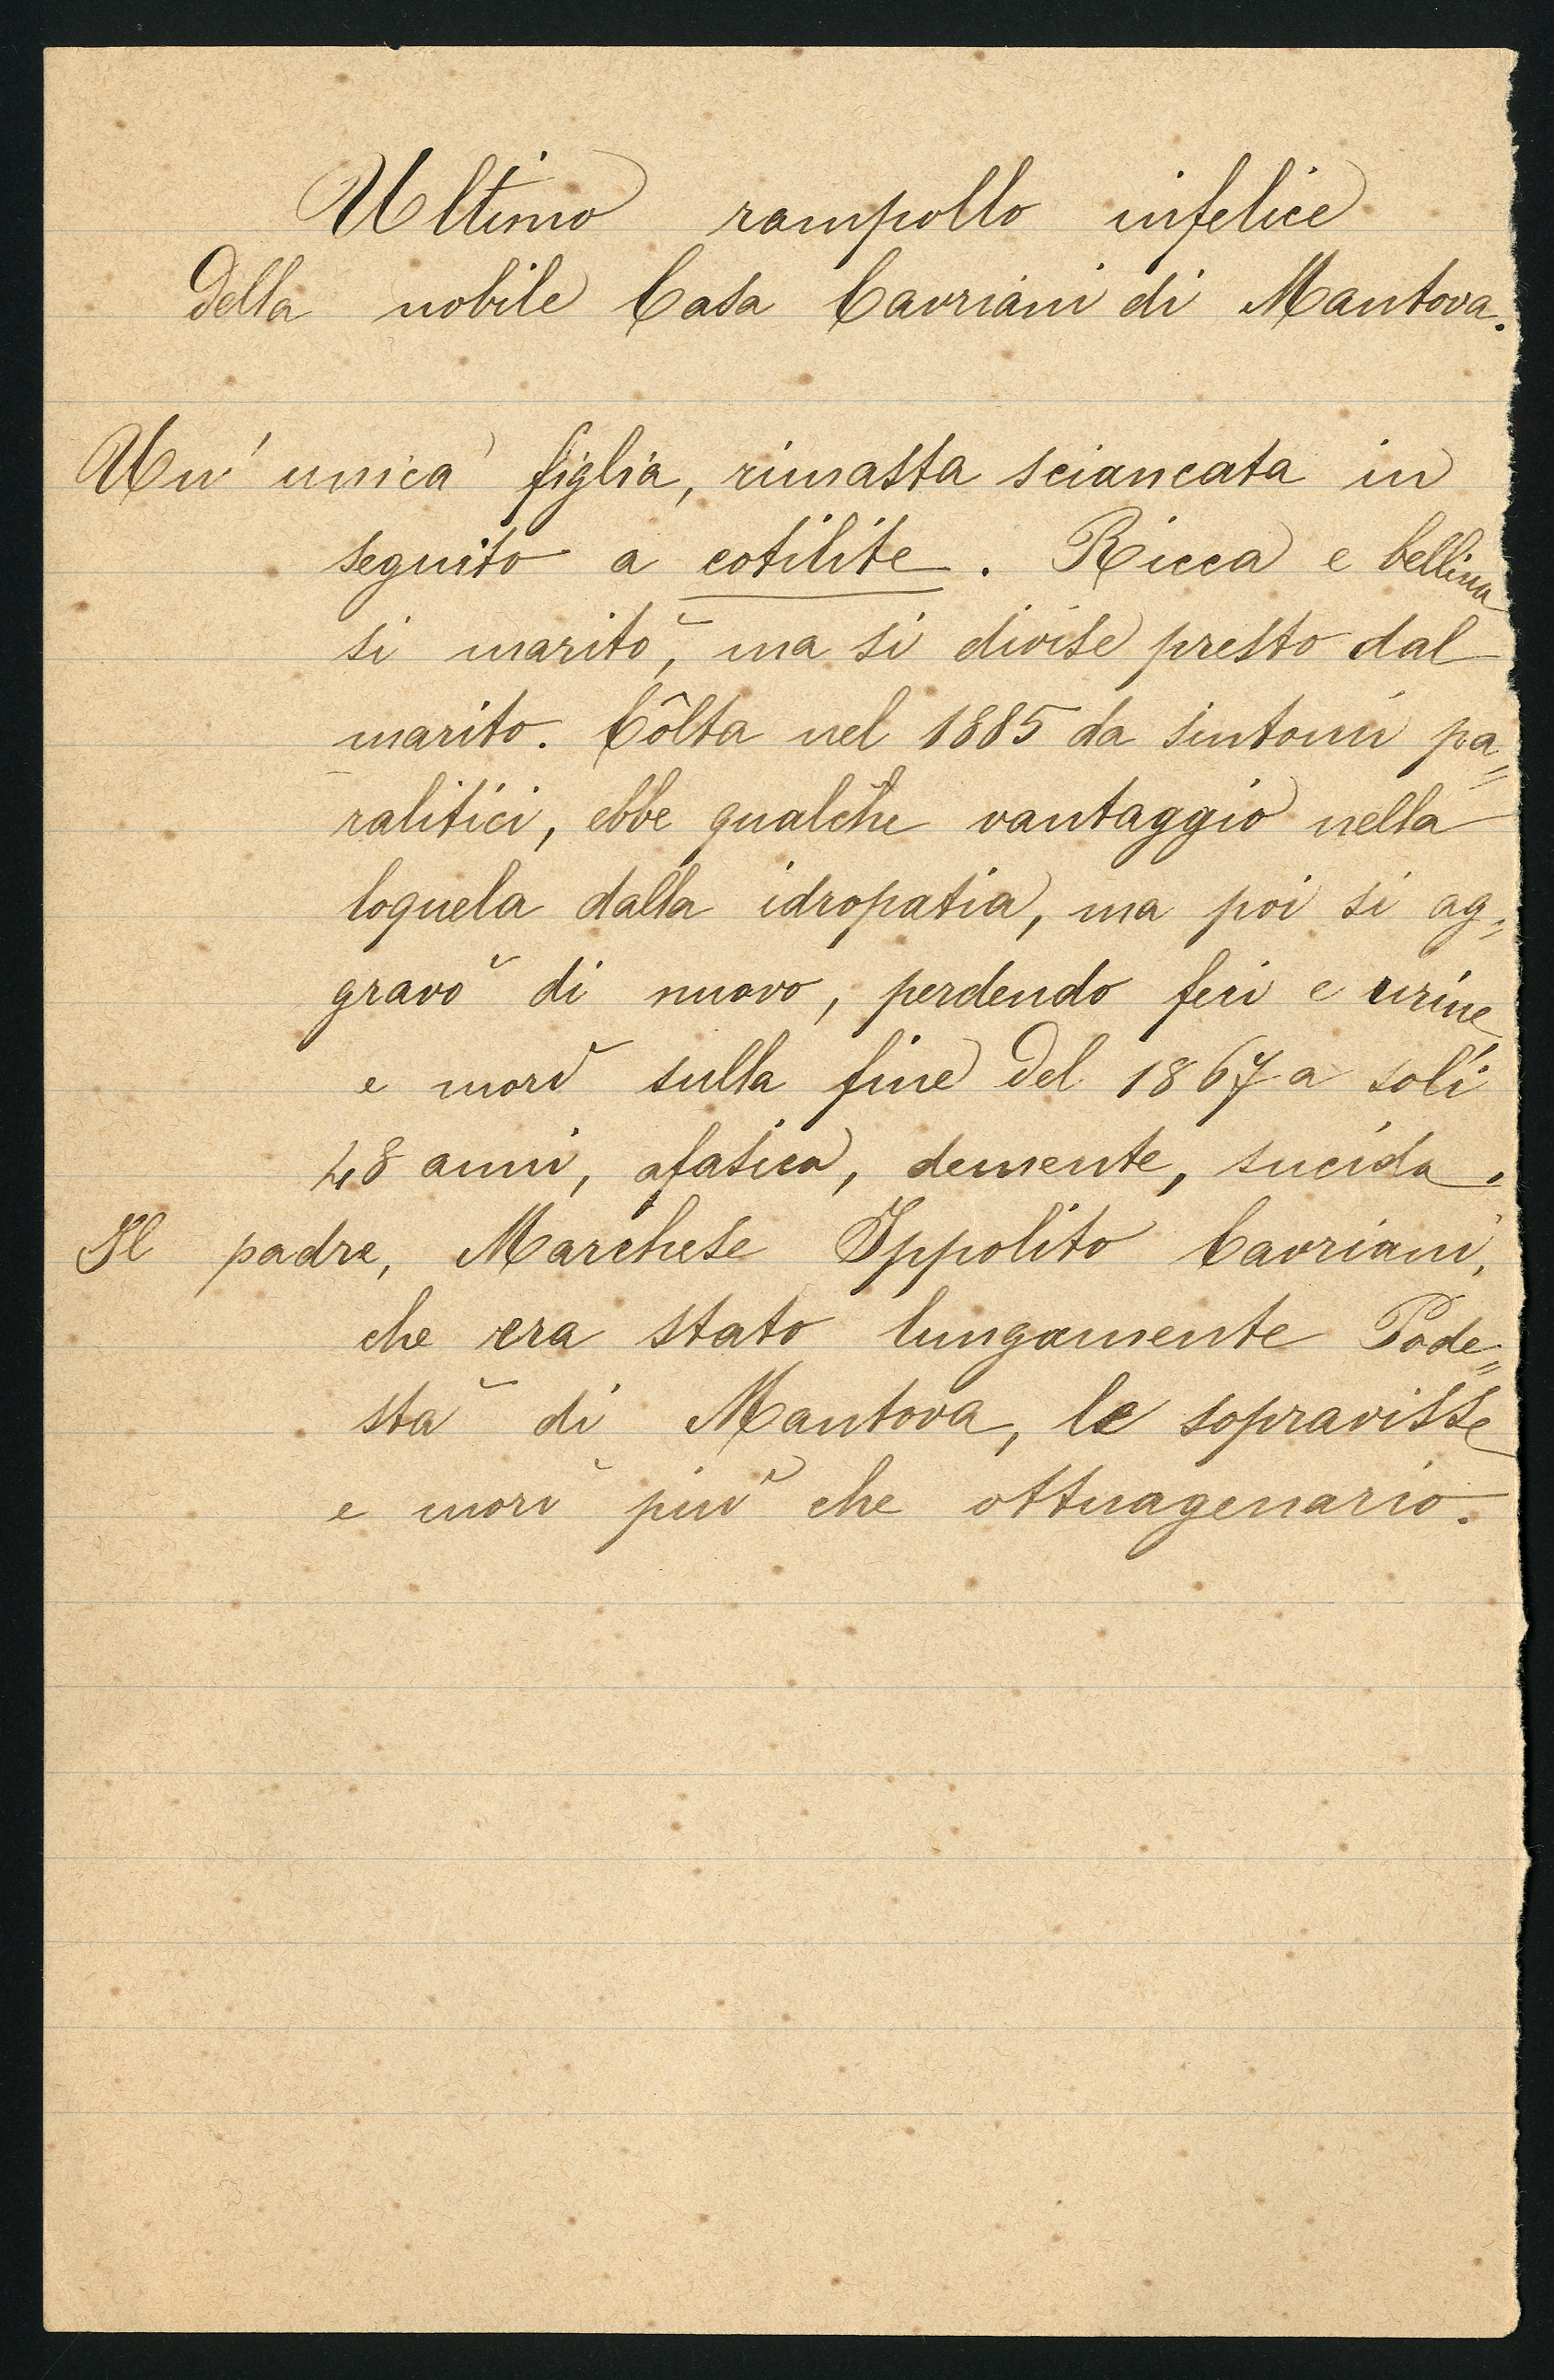 Ultimo rampollo infelice
della nobile Casa Cavriani di Mantova.
Un' unica figlia, rimasta sciancata in
seguito a cotilite. Ricca e bellina
si maritò, ma si divise presto dal
marito. Côlta nel 1885 da sintomi pa=
ralitici, ebbe qualche vantaggio nella
loquela dalla idropatia, ma poi si ag=
gravò di nuovo, perdendo feci e urine
e morì sulla fine del 1867 a soli
48 anni, afasica, demente, sucida.
Il padre, Marchese Ippolito Cavriani,
che era stato lungamente Pode=
stà di Mantova, le sopravisse
e morì più che ottuagenario.